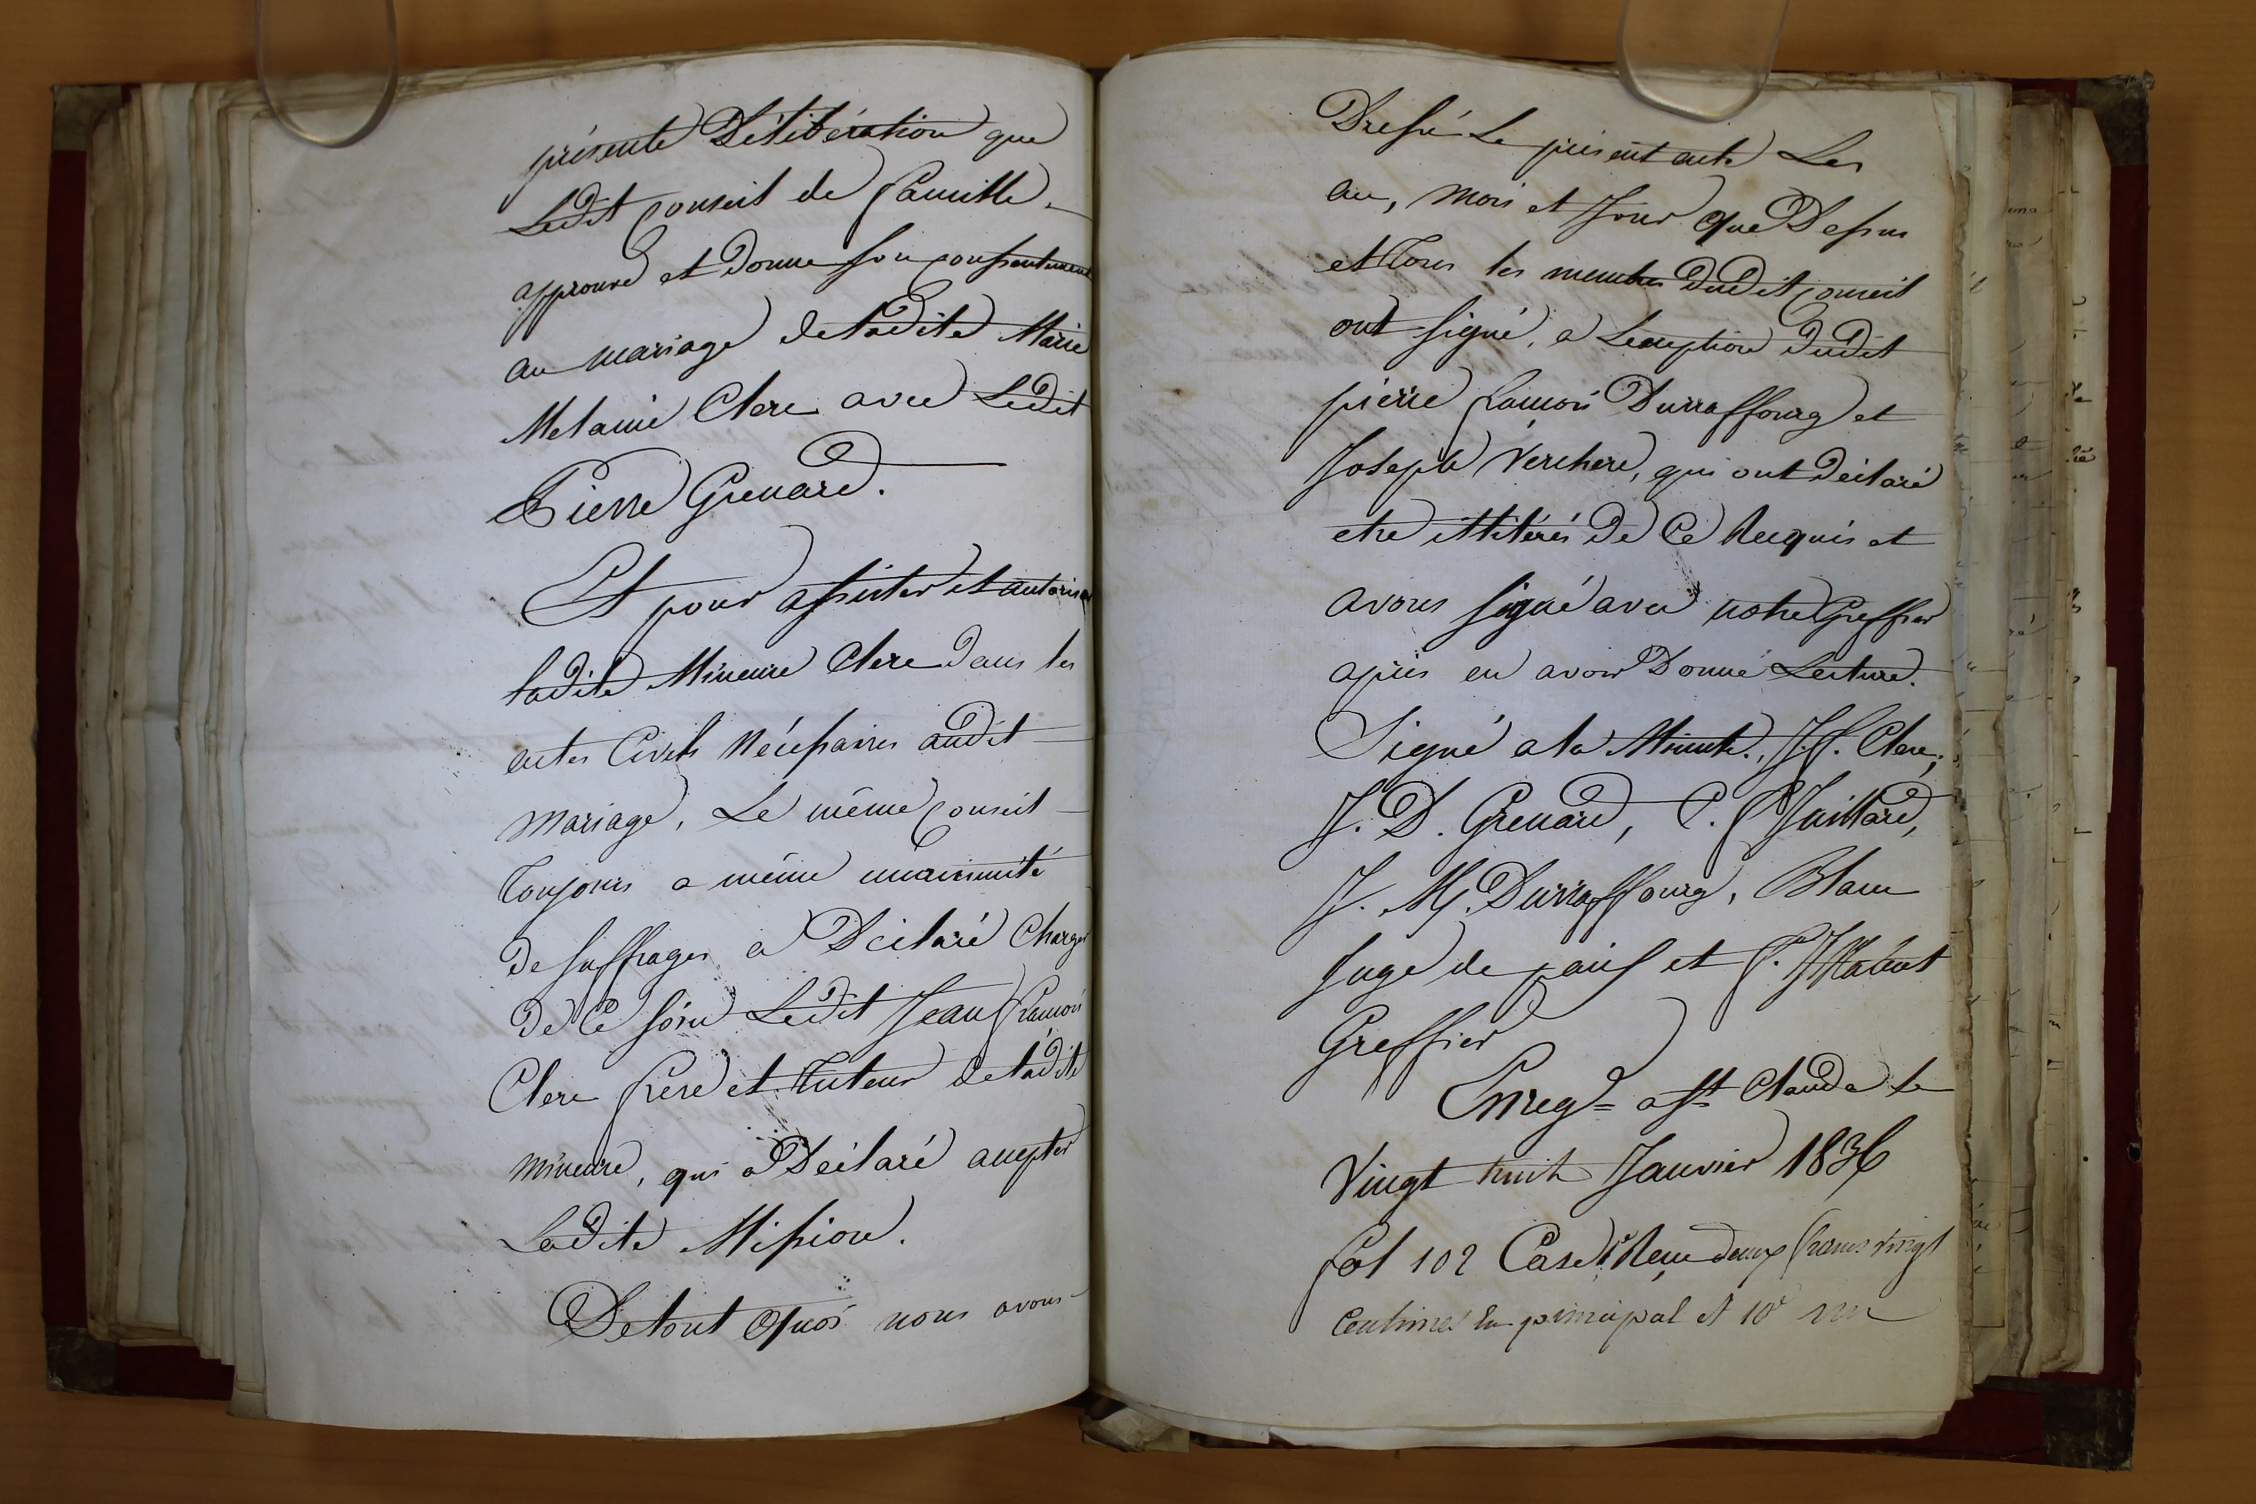 présente Délibération que
Ledit Conseil de famille
approuve et Donne son Consentement
au mariage de Ladite Marie
Melanie Clerc avec Ledit
Pierre Grenard.
Et pour assister et autoriser
Ladite Mineure Clerc dans les
actes Civils Nécessaires audit
mariage, Le même Conseil
Toujours a même unanimité
de suffrages a Déclaré Charger
de Ce soin Ledit Jean François
Clerc frère et Tuteur de Ladite
mineure, qui a Déclaré accepter
Ladite Mission.
De tout Quoi nous avons
Dressé Le présent acte Les
an, mois et Jour que Dessus
et Tous les membres Dudit Conseil
ont signé, a Lexception dudit
pierre françois Durraffourg et
Joseph Verchere, qui ont Déclaré
etre illitérés De Ce Requis et
avons signé avec notre Greffier
après en avoir Donné Lecture.
Signé a la Minute, J. f. Clerc,
J. D. Grenard, C. f. Juillard,
J. M. Durraffourg, Blanc
Juge de paix et
Greffier
Enreg= a St Claude le
Vingt huit Janvier 1836
fol 102 Case 1re Reçu deux francs vingt
Centimes en principal et 10e